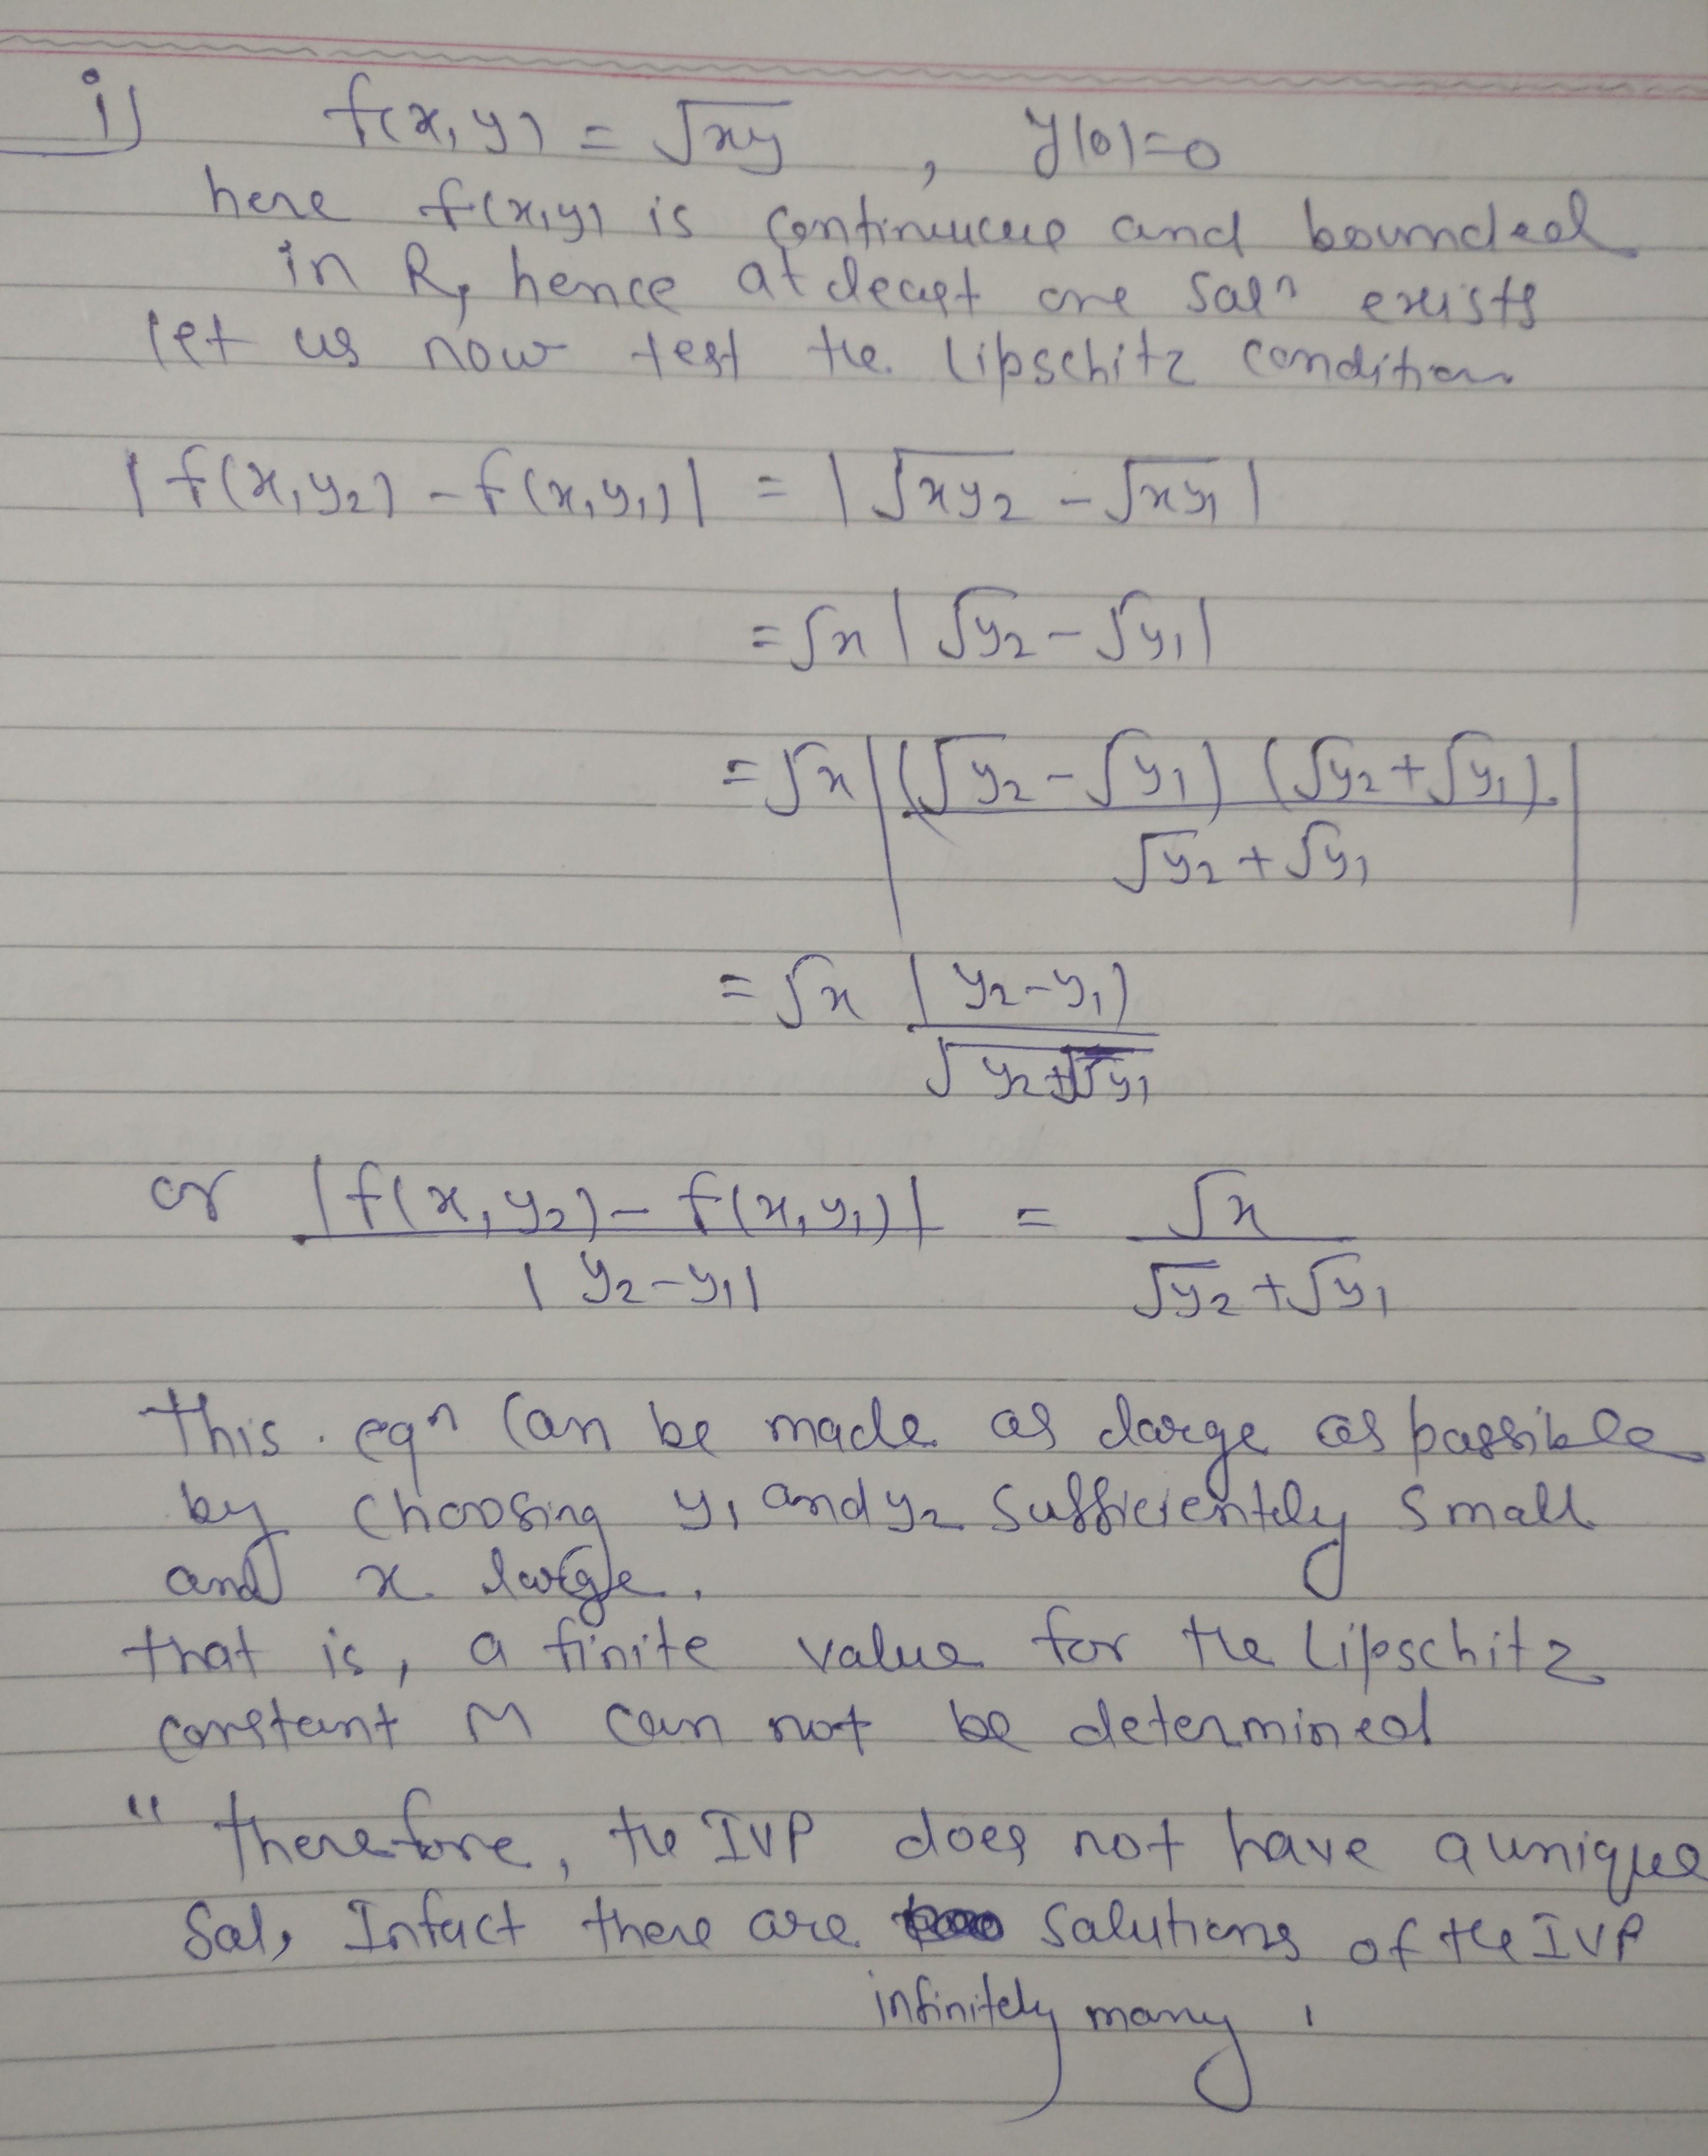 i) f(x, y) = √xy , y(0)=0
here f(x,y) is continuous and bounded
in R, hence at least one solⁿ exists
let us now test the Lipschitz condition
|f(x,y₂) - f(x,y₁)| = |√xy₂ - √xy₁|
= √x |√y₂ - √y₁|
= √x |(√y₂ - √y₁) (√y₂ + √y₁) / √y₂ + √y₁|
= √x |y₂-y₁| / √y₂+√y₁
or |f(x,y₂) - f(x,y₁)| / |y₂-y₁| = √x / √y₂+√y₁
This eqⁿ can be made as large as possible
by choosing y₁ and y₂ sufficiently small
and x large.
that is, a finite value for the Lipschitz
constant M can not be determined
" therefore, the IVP does not have a unique
Sol, Infact there are solutions of the IVP
infinitely many